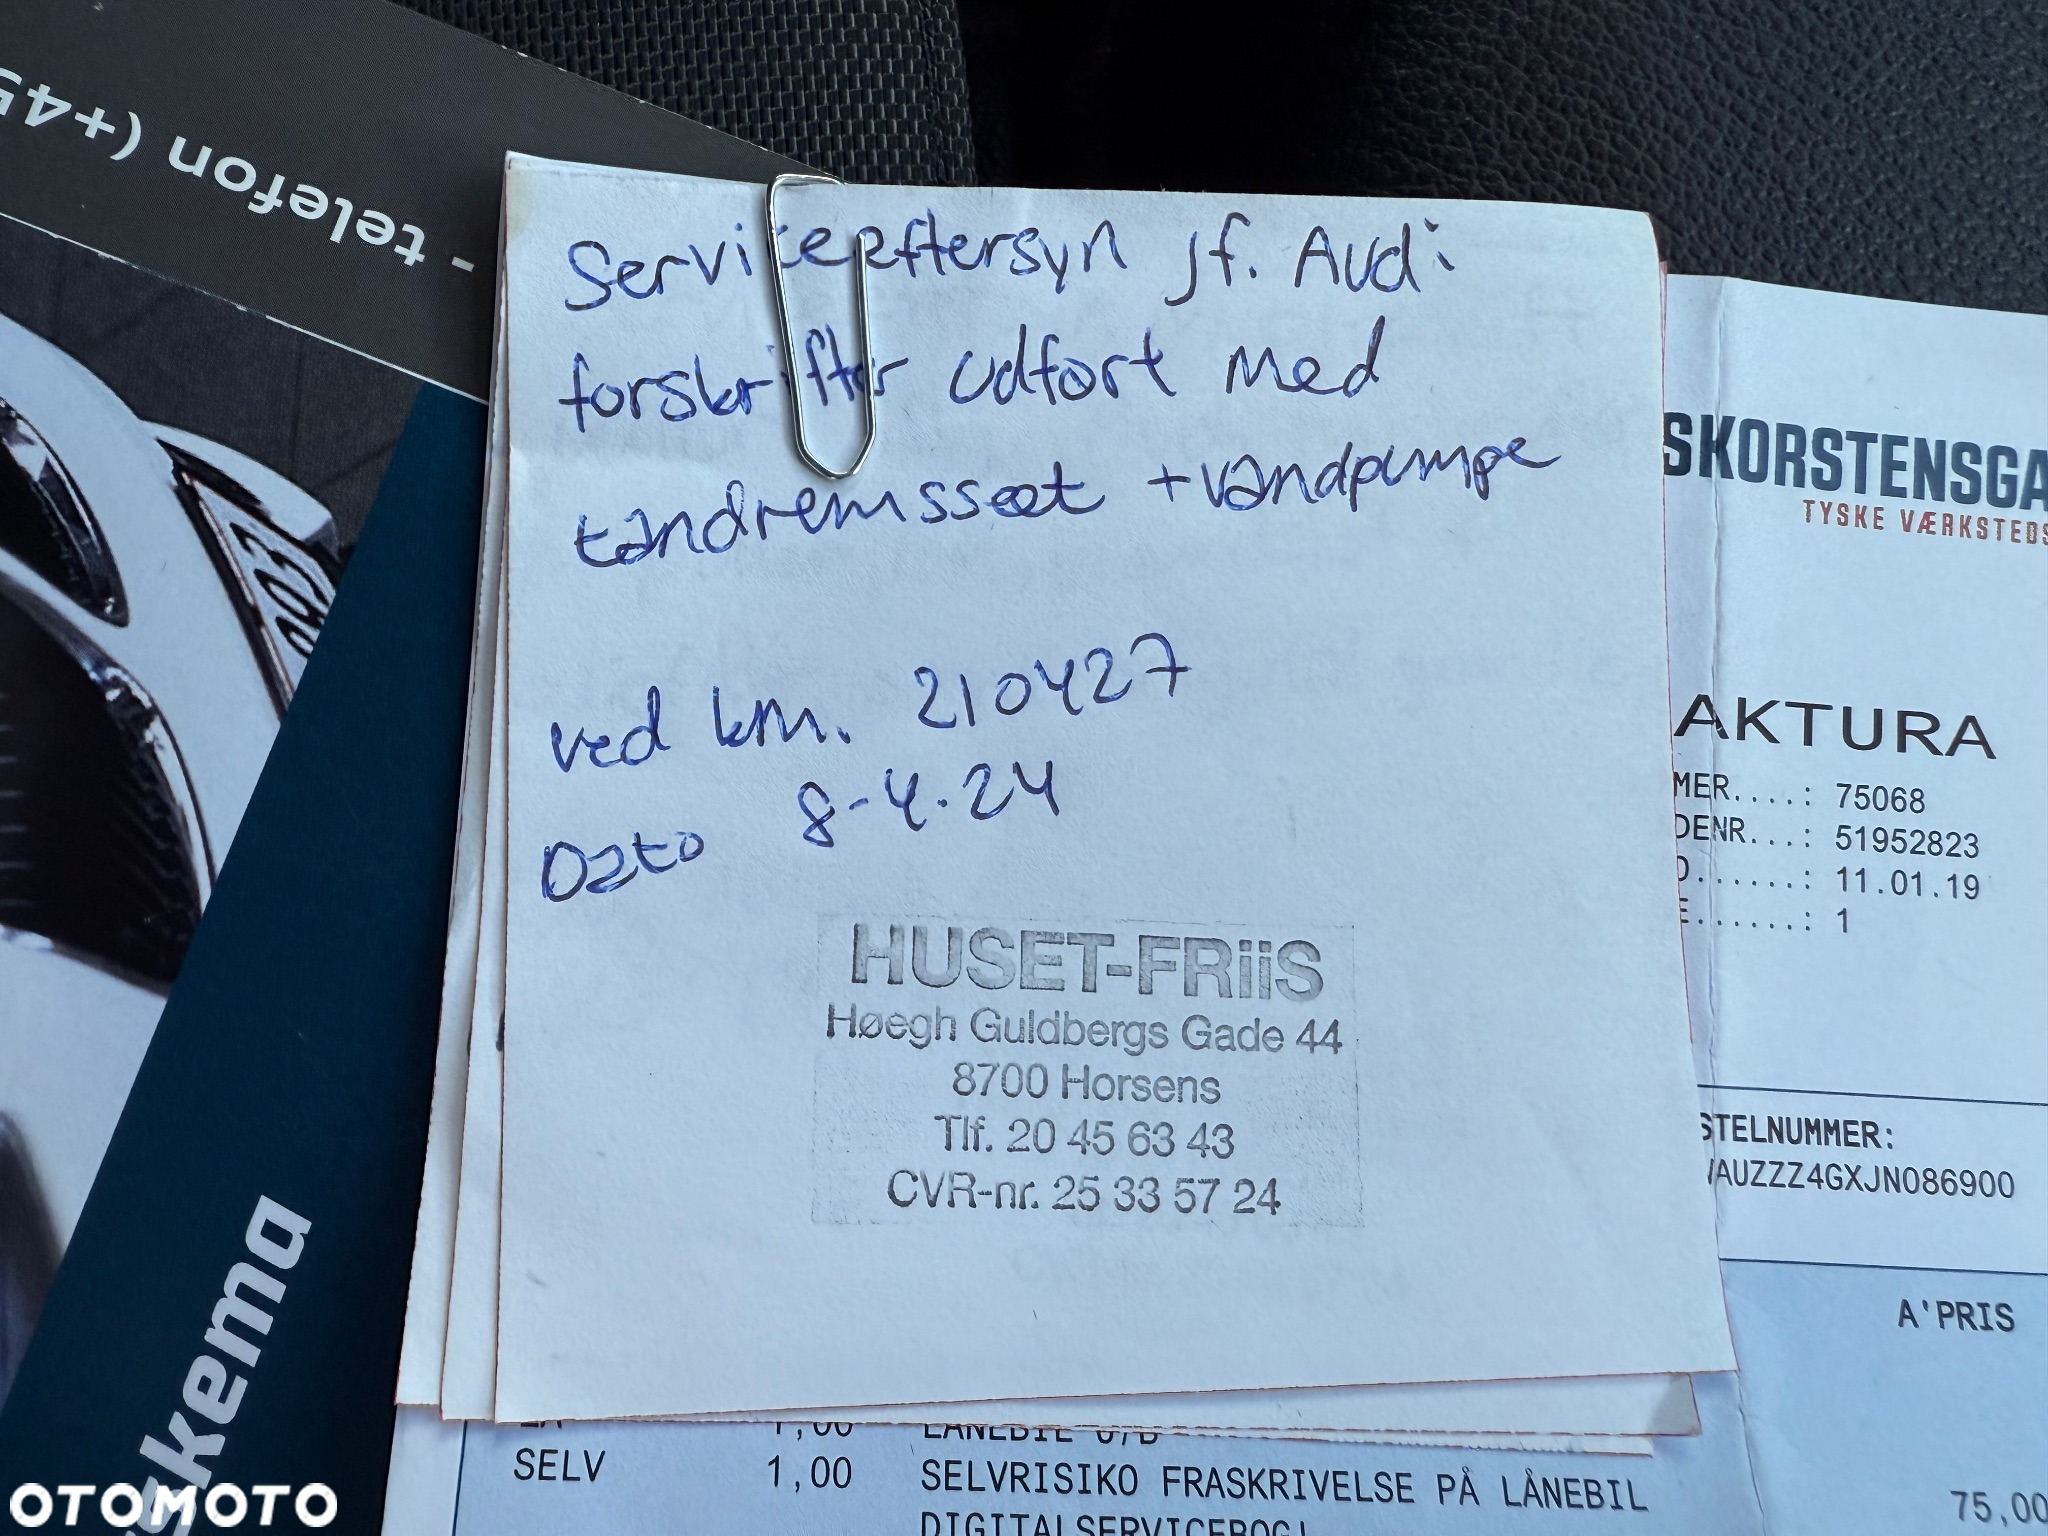 - telefon (+45
Serviceeftersyn jf. Audi
forskrifter udført med
tandremssæt + vandpumpe
ved km. 210427
Dato 8-4.24
HUSET-FRiiS
Høegh Guldbergs Gade 44
8700 Horsens
Tlf. 20 45 63 43
CVR-nr. 25 33 57 24
SKORSTENSGA
TYSKE VÆRKSTEDS
AKTURA
MER....: 75068
DENR...: 51952823
O......: 11.01.19
E......: 1
STELNUMMER:
WAUZZZ4GXJN086900
A'PRIS
1,00 LÅNEBIL
SELV 1,00 SELVRISIKO FRASKRIVELSE PÅ LÅNEBIL
75,00
DIGITALSERVICEBOG!
skema
OTOMOTO